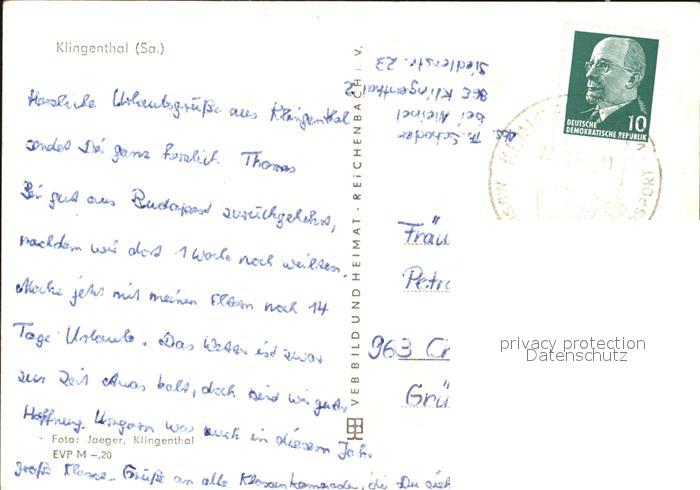 Klingenthal (Sa.)
Herzliche Urlaubsgrüße aus Klingenthal
sendet Dir ganz herzlich Thomas
Bin gut aus Budapest zurückgekehrt,
nachdem wir dort 1 Woche noch weilten.
Mache jetzt mit meinen Eltern noch 14
Tage Urlaub. Das Wetter ist zwar
zur Zeit etwas kalt, doch sind wir guter
Hoffnung. Ungarn war auch in diesem Jahr
große Klasse. Grüße an alle Klassenkameraden, die Du
Foto: Jaeger, Klingenthal
EVP M –,20
VEB BILD UND HEIMAT · REICHENBACH i. V.
Abs. Th. Schäfer
bei Meinel
965 Klingenthal 2
Siedlerstr. 23
10
DEUTSCHE
DEMOKRATISCHE REPUBLIK
Fräu
Petra
963
Grü
privacy protection
Datenschutz